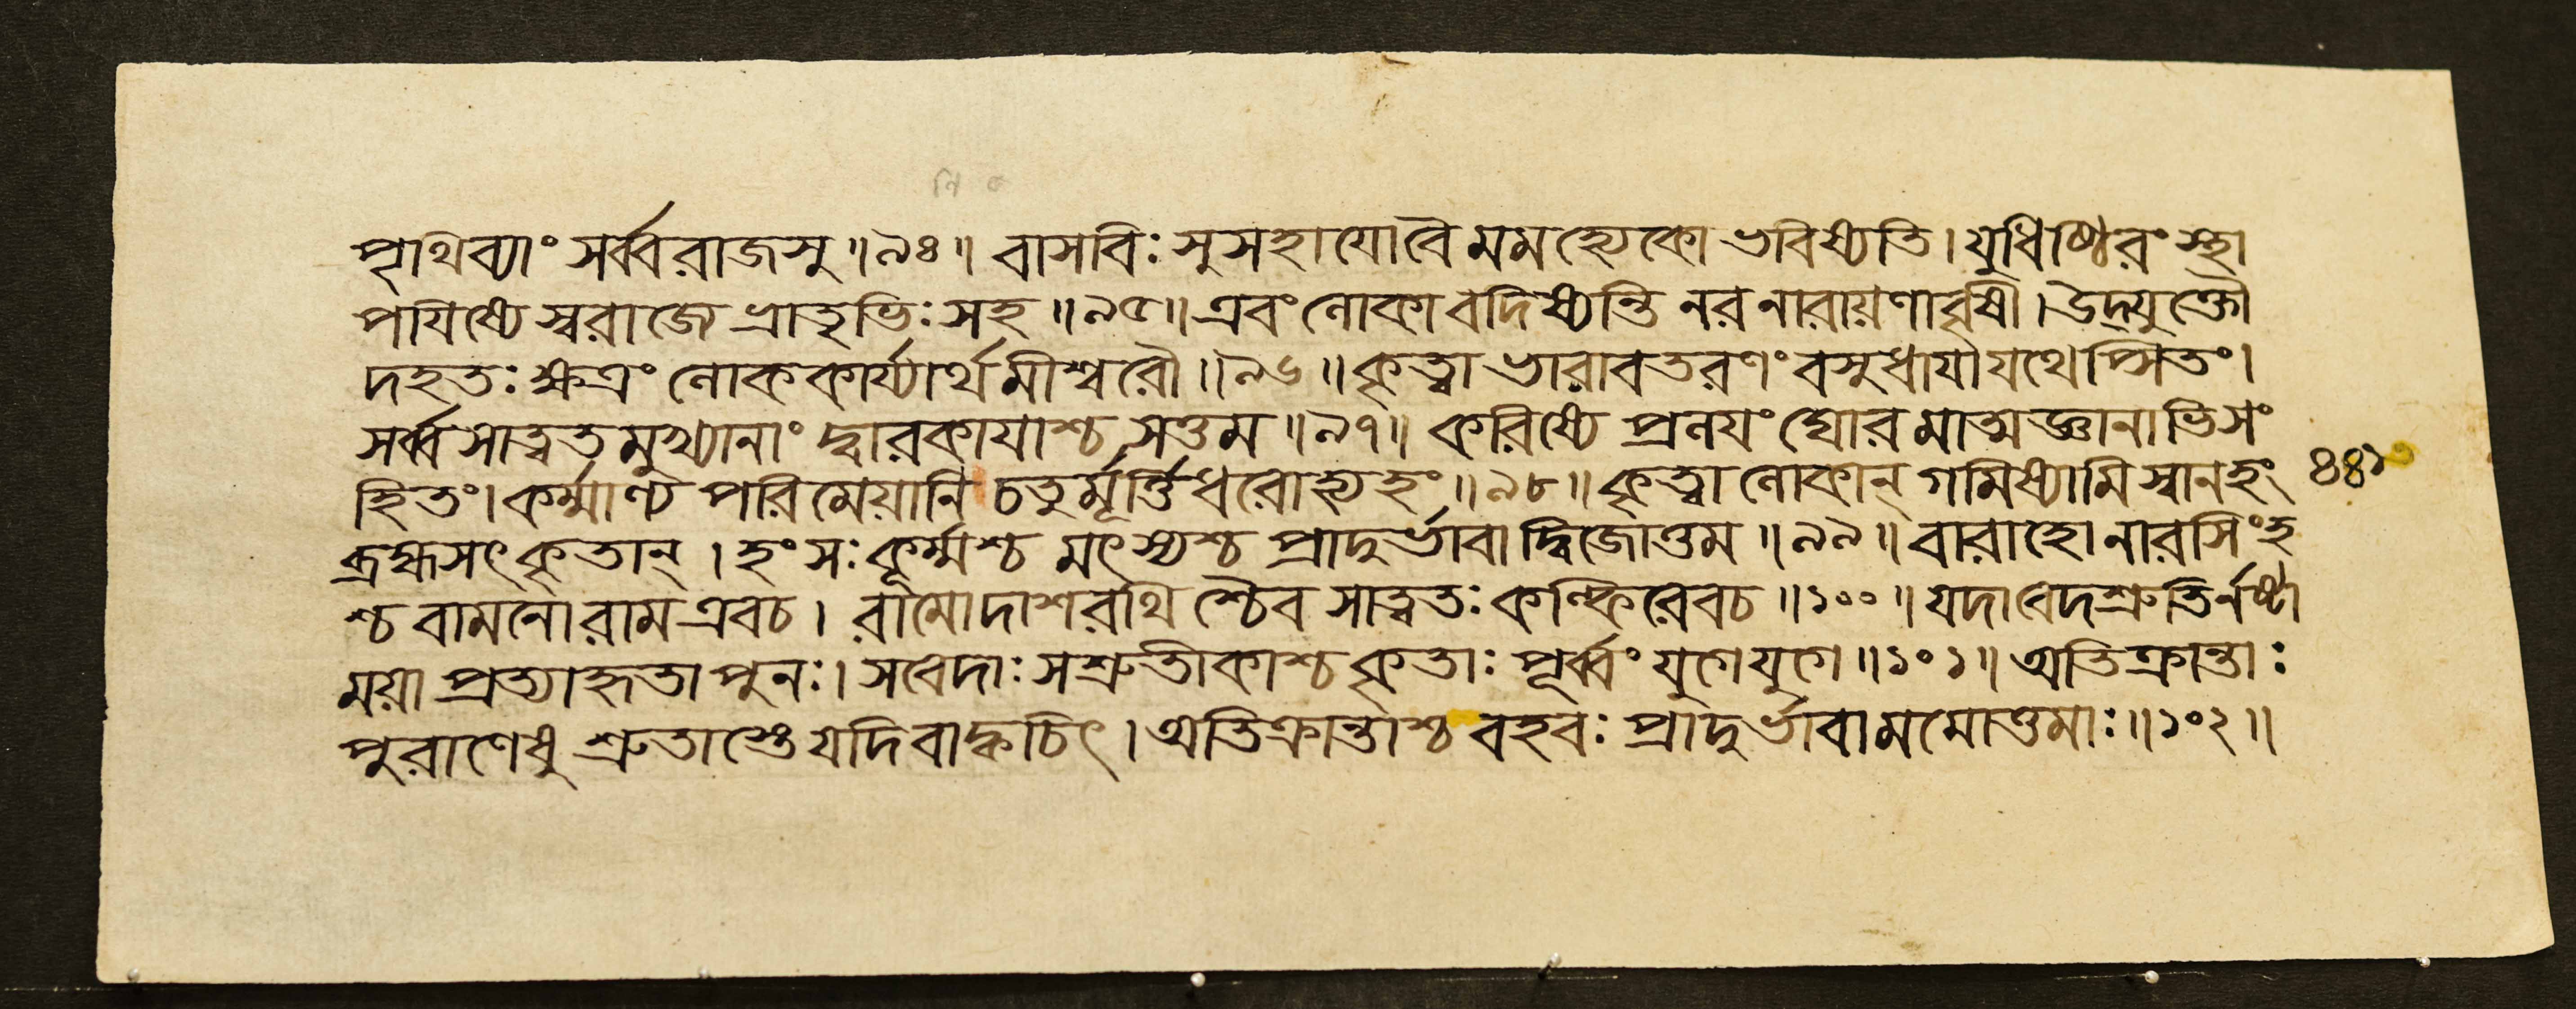 পৃথিব্যাং সর্ব্বরাজসু ॥ ৯৪ ॥ বাসবিঃ সুসহাযোবৈ মমহ্যেকো ভবিষ্যতি । যুধিষ্ঠিরং স্থা
পযিষ্যে স্বরাজে ভ্রাতৃভিঃ সহ ॥ ৯৫ ॥ এবং লোকা বদিষ্যন্তি নরনারায়ণাবৃষী । উদ্যুক্তৌ
দহতঃ ক্ষত্রং লোককার্য্যার্থমীশ্বরৌ ॥ ৯৬ ॥ কৃত্বা ভারাবতরণং বসুধাযাযথেপ্সিতং ।
সর্ব্বসাত্বতমুখ্যানাং দ্বারকাযাশ্চ সত্তম ॥ ৯৭ ॥ করিষ্যে প্রলযং ঘোরমাত্মজ্ঞানাভিসং
হিতং । কর্ম্মাণ্যপরিমেয়ানি চতুর্মূর্ত্তিধরোহ্যহং ॥ ৯৮ ॥ কৃত্বা লোকান্ গমিষ্যামি স্বানহং
ব্রহ্মসৎকৃতান্ । হংসঃ কূর্ম্মশ্চ মৎস্যশ্চ প্রাদুর্ভাবা দ্বিজোত্তম ॥ ৯৯ ॥ বারাহো নারসিংহ
শ্চ বামনো রাম এবচ । রামোদাশরথিশ্চৈব সাত্বতঃ কল্কিরেবচ ॥ ১০০ ॥ যদাবেদশ্রুতির্নষ্টা
ময়া প্রত্যাহৃতা পুনঃ । সবেদাঃ সশ্রুতীকাশ্চ কৃতাঃ পূর্ব্বং যুগেযুগে ॥ ১০১ ॥ অতিক্রান্তাঃ
পুরাণেষু শ্রুতাস্তে যদিবাক্বচিৎ । অতিক্রান্তাশ্চ বহবঃ প্রাদুর্ভাবা মমোত্তমাঃ ॥ ১০২ ॥
৪৪১